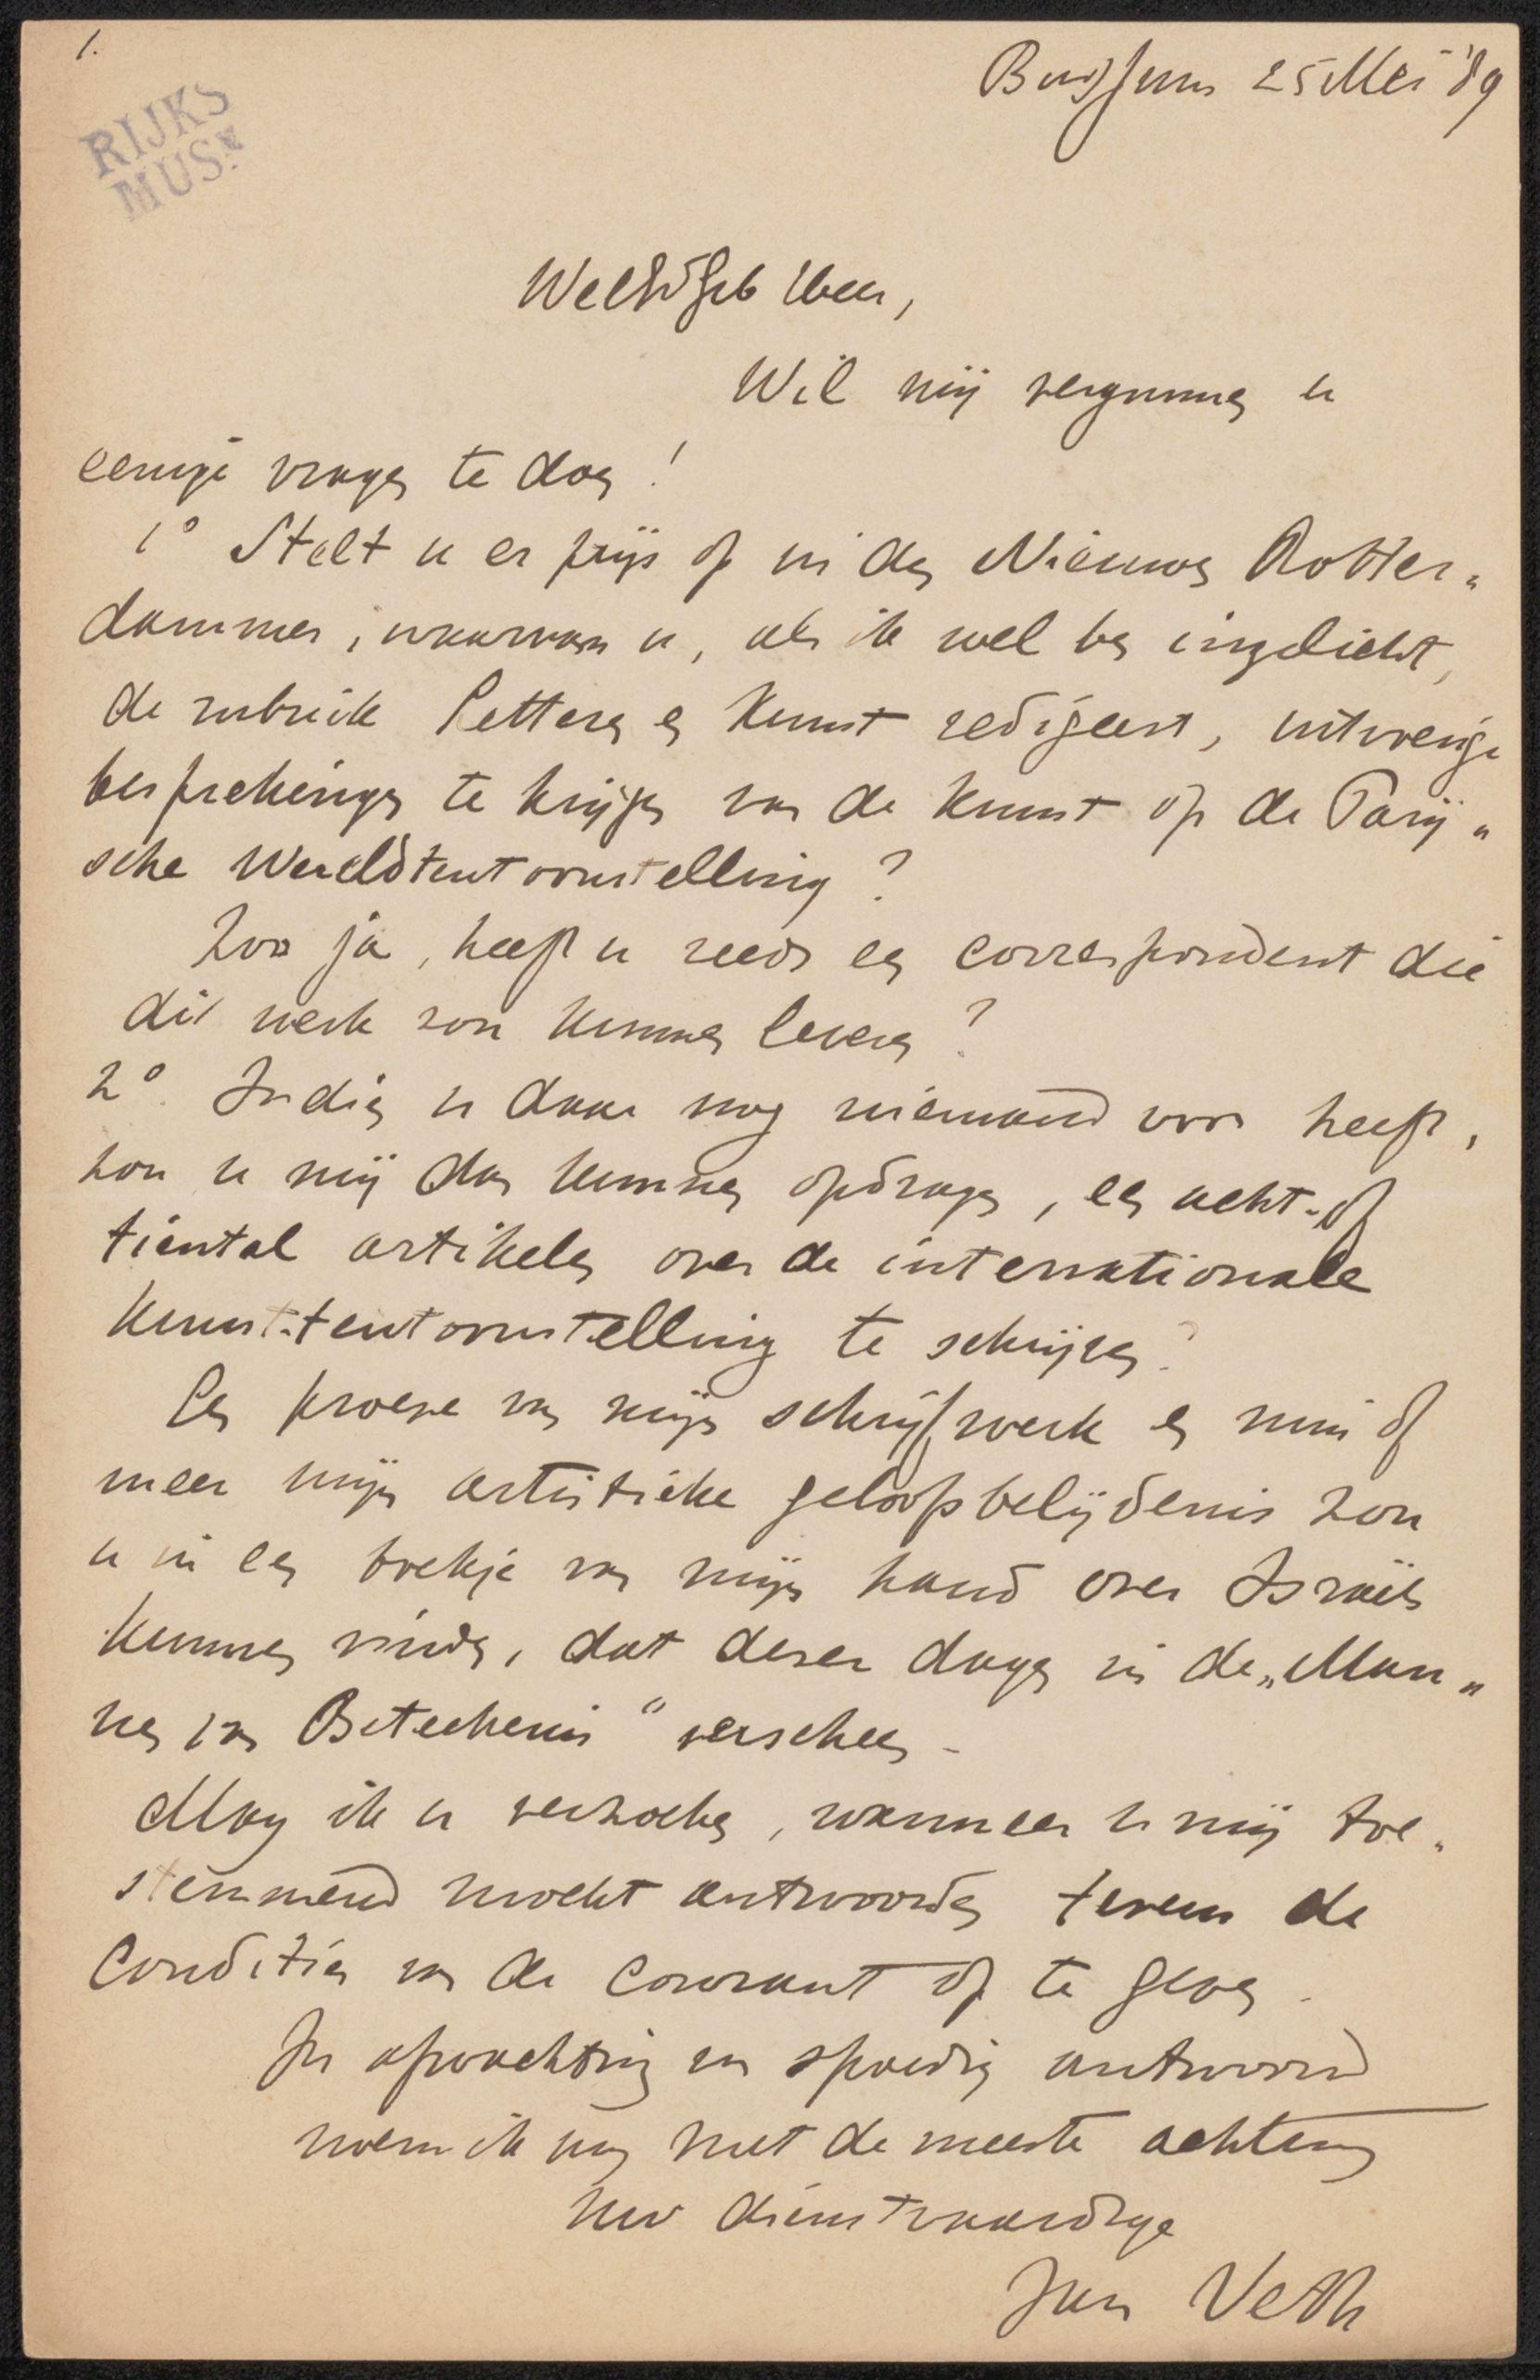 1.
Bussum 25 Mei '89
RIJKS
MUSM
WelEdGeb Heer,
Wil mij vergunnen u
eenige vragen te doen!
1° Stelt u er prijs op in den Nieuwen Rotter-
dammer, waarvan u, als ik wel ben ingelicht,
de rubriek Letteren en Kunst redigeert, uitvoerige
besprekingen te krijgen van de kunst op de Parij-
sche Wereldtentoonstelling?
Zoo ja, heeft u reeds een correspondent die
dit werk zou kunnen leveren?
2°. Indien u daar nog niemand voor heeft,
zou u mij dan kunnen opdragen, een acht- of
tiental artikelen over de internationale
kunst-tentoonstelling te schrijven?
Een proeve van mijn schrijfwerk en min of
meer mijn artistieke geloofsbelijdenis zou
u in een boekje van mijn hand over Israëls
kunnen vinden, dat dezer dagen in de „Man-
nen van Beteekenis" verscheen.
Mag ik u verzoeken, wanneer u mij toe-
stemmend mocht antwoorden tevens de
Conditiën van de courant op te geven.
In afwachting van spoedig antwoord
noem ik mij met de meeste achting
Uw dienstvaardige
Jan Veth